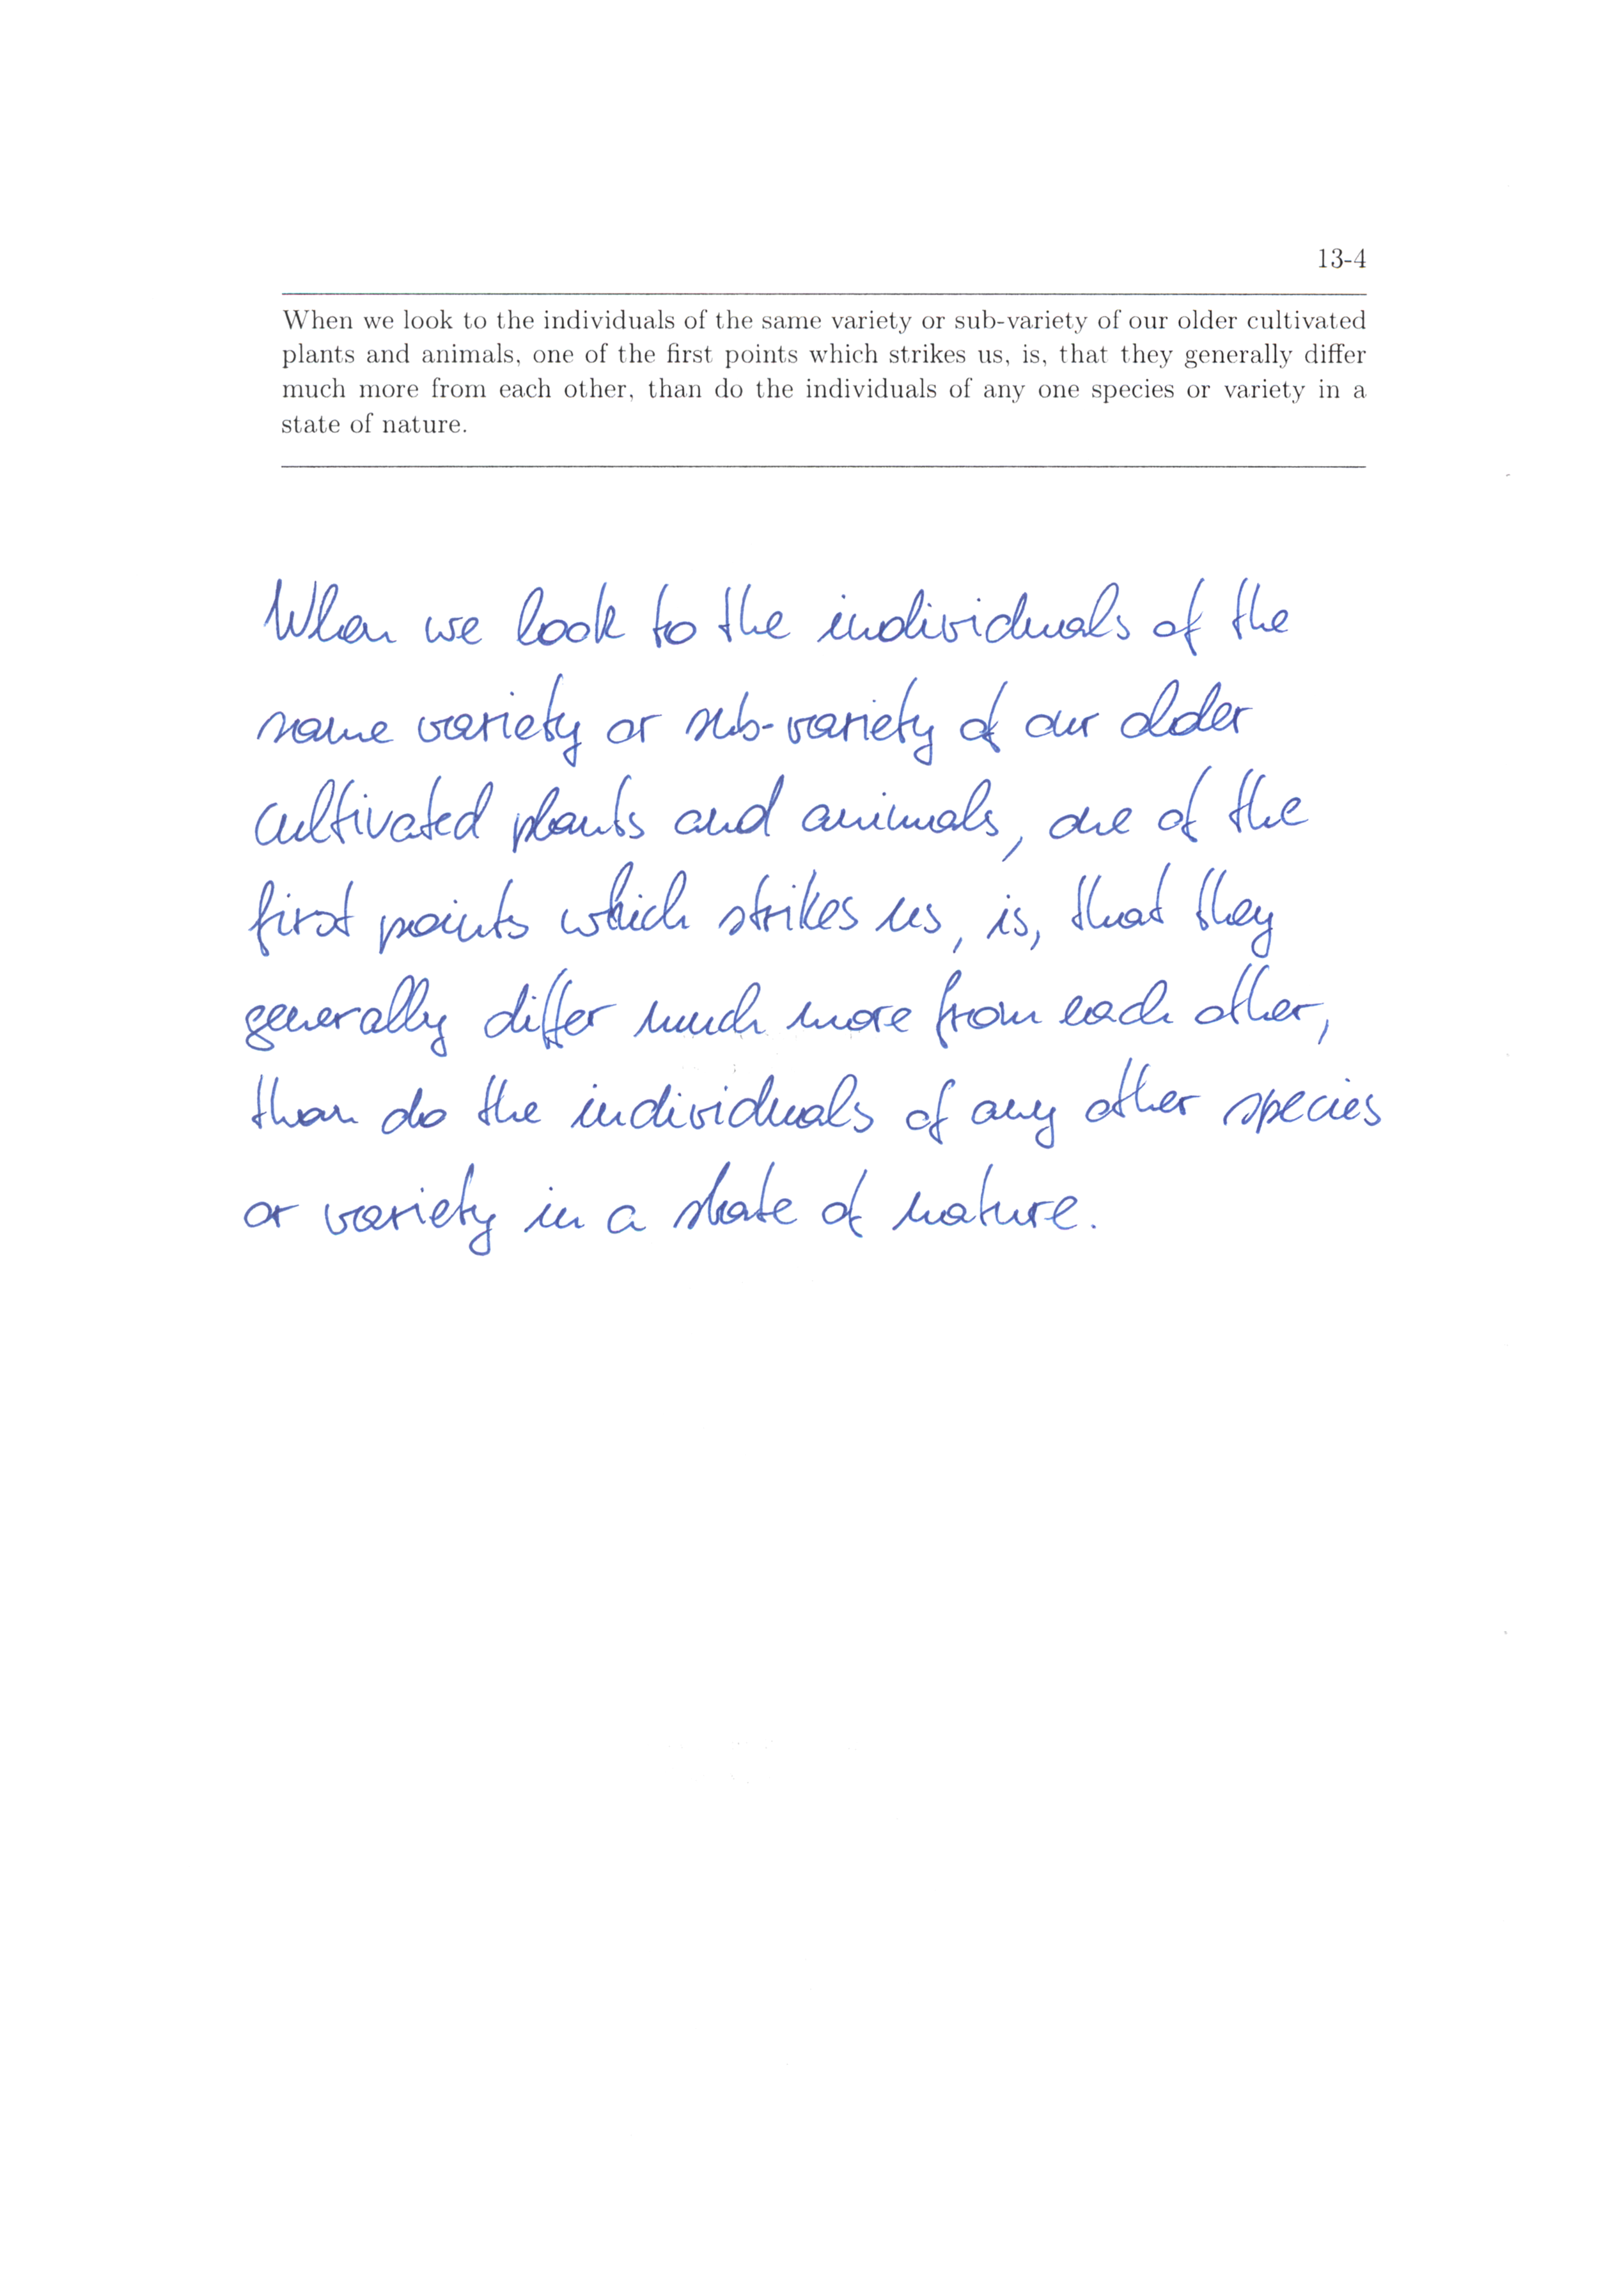 13-4
When we look to the individuals of the same variety or sub-variety of our older cultivated
plants and animals, one of the first points which strikes us, is, that they generally differ
much more from each other, than do the individuals of any one species or variety in a
state of nature.
When we look to the individuals of the
same variety or sub-variety of our older
cultivated plants and animals, one of the
first points which strikes us, is, that they
generally differ much more from each other,
than do the individuals of any other species
or variety in a state of nature.